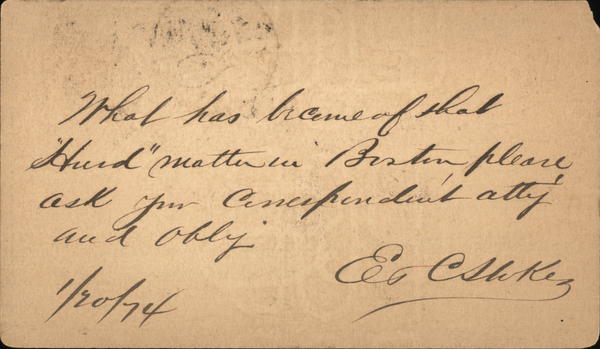 What has become of that
"Hurd" matter in Boston, please,
ask your Correspondent atty
and Oblj
Ed C Stokes
1/20/74